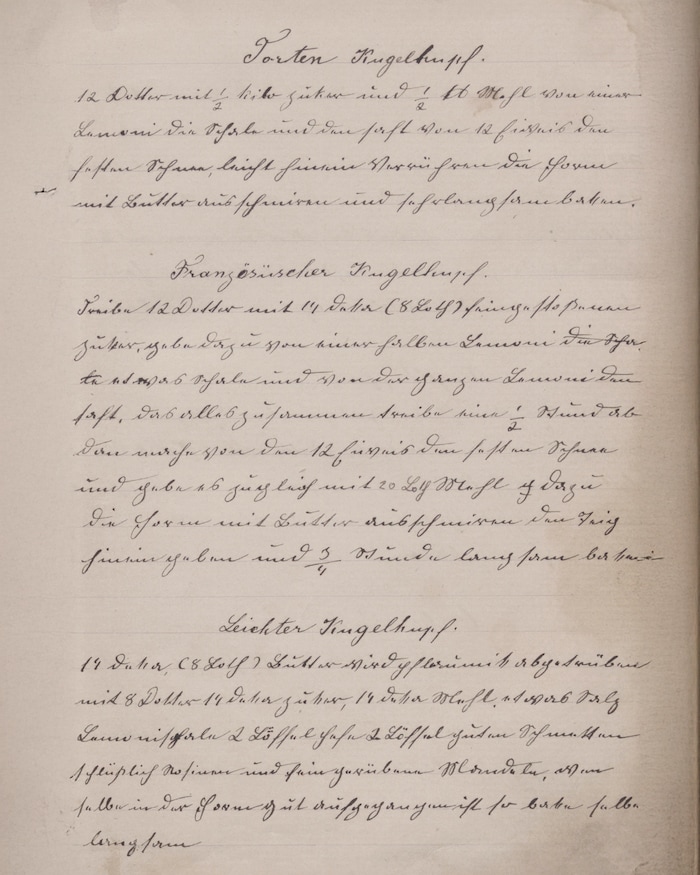 Torten Kugelhupf.
12 Dotter mit 1/2 kilo zuker und 1/2 ℔ Mehl von einer
Lemoni die Schale und den saft von 12 Eiweis den
festen Schnee, leicht hinein verrühren die Form
mit Butter ausschmiren und sehrlangsam baken.
Französischer Kugelhupf.
Treibe 12 Dotter mit 14 deka (8 Loth) feingestoßenen
zuker, gebe dazu von einer halben Lemoni die Scha-
le etwas Schale und von der ganzen Lemoni den
saft, das alles zusammen treibe eine 1/2 Stund ab
dan mache von den 12 Eiweis den festen Schnee
und gebe es zugleich mit 20 Loth Mehl dazu
die Form mit Butter ausschmiren den Teig
hinein geben und 3/4 Stunde langsam baken
Leichter Kugelhupf.
14 deka, (8 Loth) Butter wird pflaumik abgetrüben
mit 8 Dotter 14 deka zuker, 14 deka Mehl, etwas Salz
Lemonischale 2 Löffel hefe 2 Löffel guten Schmetten
schlüßlich Rosinen und fein gerübene Mandeln, wen
selbe in der Form gut aufgegangen ist so bake selbe
langsam